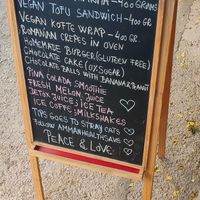 400 GRAMS
VEGAN TOFU SANDWICH - 400 GR.
VEGAN KOFTE WRAP - 400 GR
ROMANIAN CREPES IN OVEN
HOMEMADE BURGER (GLUTEN FREE)
CHOCOLATE CAKE (0% SUGAR)
CHOCOLATE BALLS WITH BANANA &
PINA COLADA SMOOTHIE
FRESH MELON JUICE
DETOX JUICE; ICE TEA
ICE COFFE; MILKSHAKES
TIPS GOES TO STRAY CATS
FOLLOW AMMANHEALTHSAVE
PEACE & LOVE